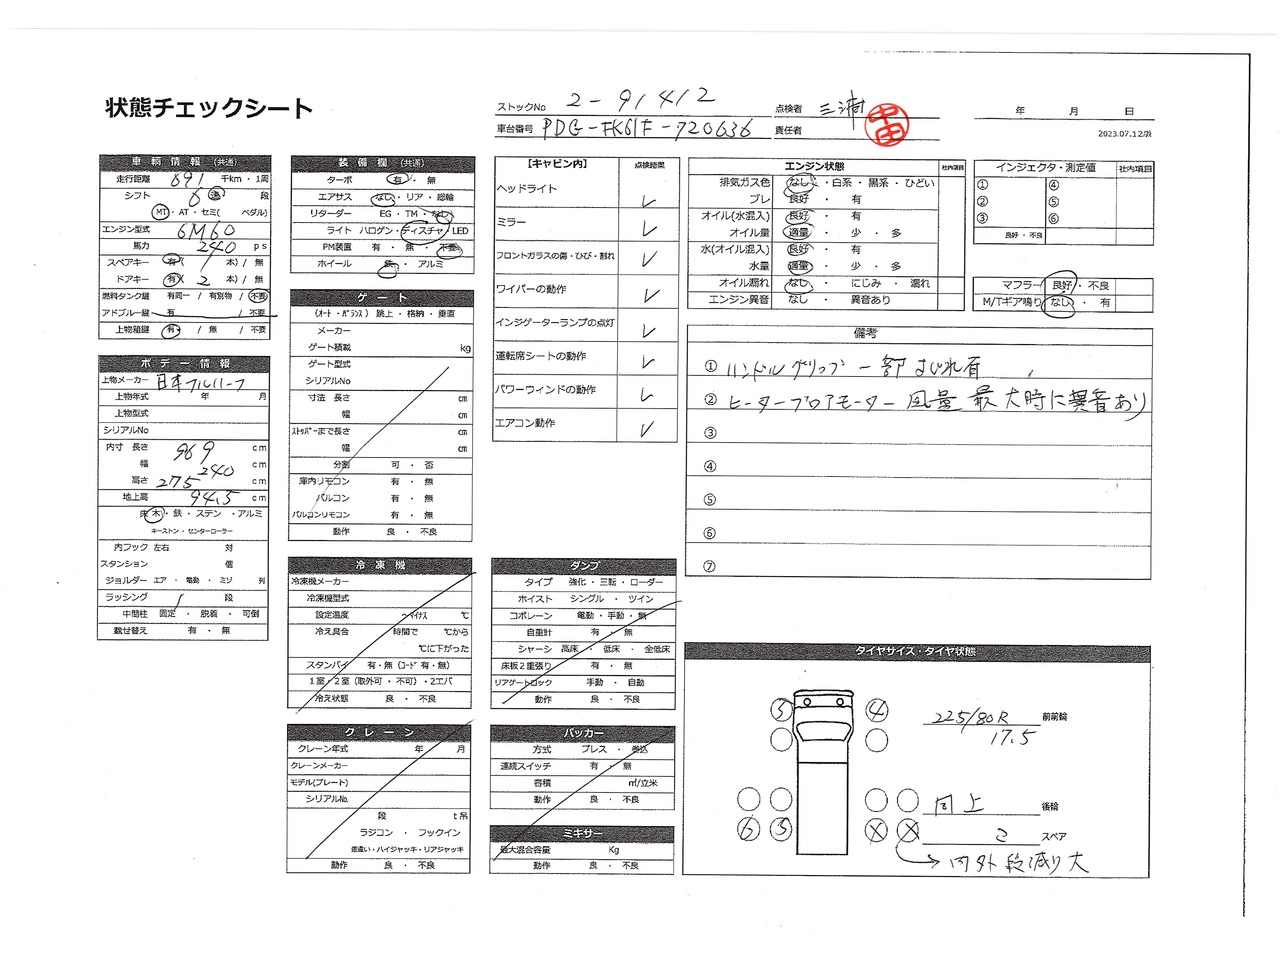 状態チェックシート
ストックNo 2-91412
車台番号 PDG-FK61F-720636
点検者 三浦
責任者
年 月 日
2023.07.12版
車輌情報 (共通)
走行距離 691 千km・1周
シフト 6 速 段
MT・AT・セミ( ペダル)
エンジン型式 6M60
馬力 240 ps
スペアキー 有( 1 本) / 無
ドアキー 有( 2 本) / 無
燃料タンク鍵 有同一 / 有別物 / 不要
アドブルー鍵 有 / 不要
上物箱鍵 有 / 無 / 不要
ボデー情報
上物メーカー 日本フルハーフ
上物年式 年 月
上物型式
シリアルNo
内寸 長さ 969 cm
幅 240 cm
高さ 275 cm
地上高 94.5 cm
床 木・鉄・ステン・アルミ
キーストン・センターローラー
内フック 左右 対
スタンション 個
ジョルダー エア・電動・ミゾ 列
ラッシング 段
中間柱 固定・脱着・可倒
載せ替え 有・無
装備欄 (共通)
ターボ 有・無
エアサス なし・リア・総輪
リターダー EG・TM・なし
ライト ハロゲン・ディスチャ・LED
PM装置 有・無・不要
ホイール 鉄・アルミ
ゲート
(オート・バランス) 跳上・格納・垂直
メーカー
ゲート積載 kg
ゲート型式
シリアルNo
寸法 長さ cm
幅 cm
ストッパーまで長さ cm
幅 cm
分割 可・否
庫内リモコン 有・無
バルコン 有・無
バルコンリモコン 有・無
動作 良・不良
冷凍機
冷凍機メーカー
冷凍機型式
設定温度 ~マイナス ℃
冷え具合 時間で ℃から
℃に下がった
スタンバイ 有・無 (コード 有・無)
1室・2室 (取外可・不可)・2エバ
冷え状態 良・不良
クレーン
クレーン年式 年 月
クレーンメーカー
モデル(プレート)
シリアルNo.
段 t吊
ラジコン・フックイン
差違い・ハイジャッキ・リアジャッキ
動作 良・不良
【キャビン内】 点検結果
ヘッドライト ✓
ミラー ✓
フロントガラスの傷・ひび・割れ ✓
ワイパーの動作 ✓
インジゲーターランプの点灯 ✓
運転席シートの動作 ✓
パワーウィンドの動作 ✓
エアコン動作 ✓
ダンプ
タイプ 強化・三転・ローダー
ホイスト シングル・ツイン
コボレーン 電動・手動・無
自重計 有・無
シャーシ 高床・低床・全低床
床板2重張り 有・無
リアゲートロック 手動・自動
動作 良・不良
パッカー
方式 プレス・巻込
連続スイッチ 有・無
容積 ㎥/立米
動作 良・不良
ミキサー
最大混合容量 Kg
動作 良・不良
エンジン状態 社内項目
排気ガス色 なし・白系・黒系・ひどい
ブレ 良好・有
オイル(水混入) 良好・有
オイル量 適量・少・多
水(オイル混入) 良好・有
水量 適量・少・多
オイル漏れ なし・にじみ・漏れ
エンジン異音 なし・異音あり
インジェクタ・測定値 社内項目
① ④
② ⑤
③ ⑥
良好・不良
マフラー 良好・不良
M/Tギア鳴り なし・有
備考
① ハンドルグリップ 一部まじれ有
② ヒーターブロアモーター 風量 最大時に異音あり
③
④
⑤
⑥
⑦
タイヤサイズ・タイヤ状態
3 4 225/80R 前前輪
17.5
同上 後輪
6 3 X X 2 スペア
→内外段減り大